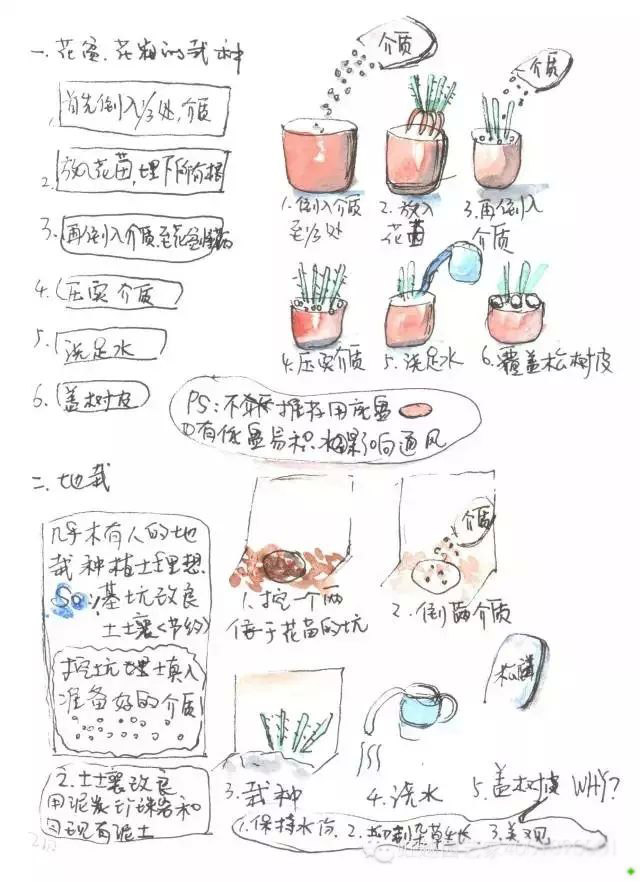 一、花盆、花箱的栽种
1. 首先倒入1/3处,介质
2. 放入花苗,埋下所有根
3. 再倒入介质至花盆
4. 压实介质
5. 浇足水
6. 盖树皮
介质
介质
1.倒入介质
至1/3处
2.放入
花苗
3.再倒入
介质
4.压实介质
5.浇足水
6.覆盖松树皮
PS:不推荐用底盘
有底盘易积水影响通风
二、地栽
几乎木有人的地
栽种植土理想
So,基坑改良
土壤<节约>
挖坑埋填入
准备好的介质
2.土壤改良
用泥炭珍珠岩和
现有泥土
介质
1.挖一个两
倍于花苗的坑
2.倒两介质
松鳞
3.栽种
4.浇水
5.盖树皮 WHY?
1.保持水份 2.抑制杂草生长 3.美观